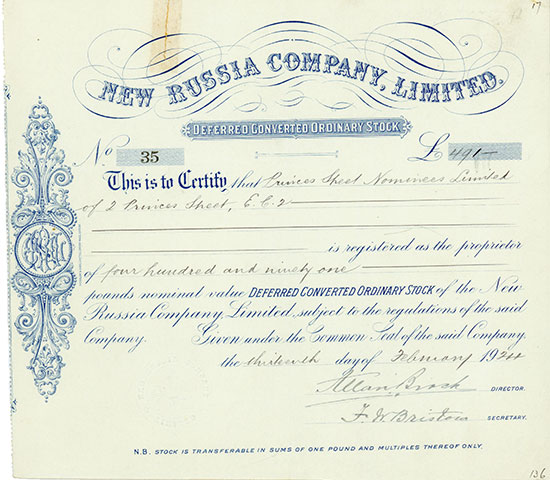 17
NEW RUSSIA COMPANY, LIMITED.
DEFERRED CONVERTED ORDINARY STOCK
No 35 £ 491-
This is to Certify that Princes Street Nominees Limited
of 2 Princes Street, E.C.2
is registered as the proprietor
of four hundred and ninety one
pounds nominal value DEFERRED CONVERTED ORDINARY STOCK of the New
Russia Company, Limited, subject to the regulations of the said
Company. Given under the Common Seal of the said Company,
the thirteenth day of February 192
Allan Brock DIRECTOR.
F. W. Bristow SECRETARY.
N.B. STOCK IS TRANSFERABLE IN SUMS OF ONE POUND AND MULTIPLES THEREOF ONLY.
136